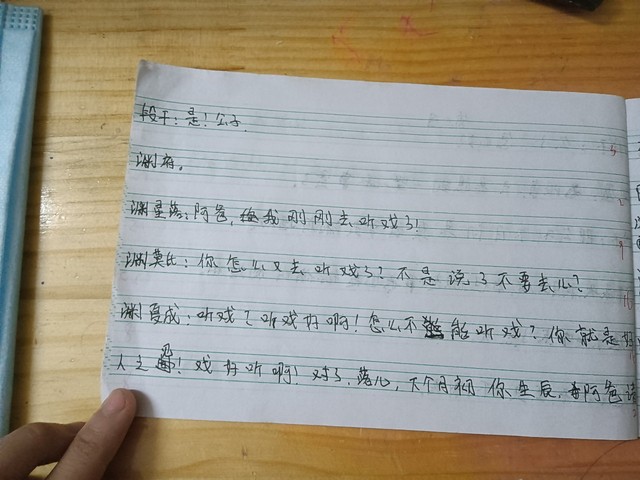 段干：是！公子.
渊府。
渊星落：阿爸，我刚刚去听戏了！
渊莫比：你怎么又去听戏了？不是说了不要去么？
渊夏成：听戏？听戏好啊！怎么不能听戏？你就是好
人之！戏好听啊！对了，落儿，下个月初你生辰，阿爸请